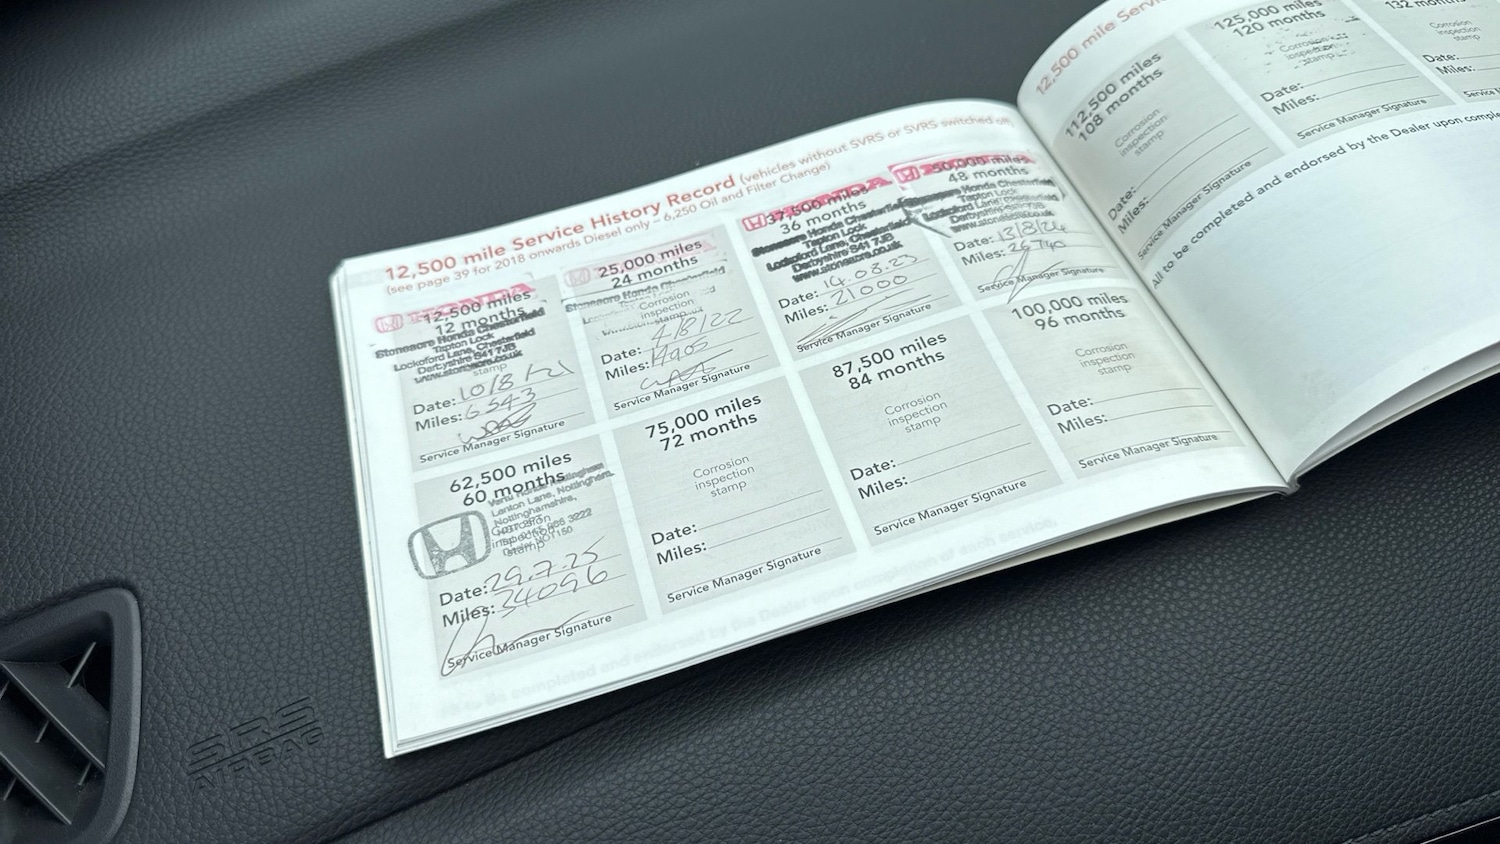 12,500 mile Service History Record (vehicles without SVRS or SVRS switched off)
(see page 39 for 2018 onwards Diesel only – 6,250 Oil and Filter Change)
HONDA
12,500 miles
12 months
Stoneacre Honda Chesterfield
Tapton Lock
Lockoford Lane, Chesterfield
Derbyshire S41 7JB
www.stoneacre.co.uk
stamp
Date: 10/8/21
Miles: 6543
Service Manager Signature
25,000 miles
24 months
Stoneacre Honda Chesterfield
Corrosion
inspection
stamp
Date: 4/8/22
Miles: 14905
Service Manager Signature
HONDA
37,500 miles
36 months
Stoneacre Honda Chesterfield
Tapton Lock
Lockoford Lane, Chesterfield
Derbyshire S41 7JB
www.stoneacre.co.uk
Date: 14.08.23
Miles: 21000
Service Manager Signature
50,000 miles
48 months
Stoneacre Honda Chesterfield
Tapton Lock
Lockoford Lane, Chesterfield
Derbyshire S41 7JB
www.stoneacre.co.uk
Date: 13/8/24
Miles: 26740
Service Manager Signature
62,500 miles
60 months
Vertu Honda Nottingham
Lenton Lane, Nottingham,
Nottinghamshire,
Corrosion
inspection
stamp
Date: 29.7.25
Miles: 34096
Service Manager Signature
75,000 miles
72 months
Corrosion
inspection
stamp
Date:
Miles:
Service Manager Signature
87,500 miles
84 months
Corrosion
inspection
stamp
Date:
Miles:
Service Manager Signature
100,000 miles
96 months
Corrosion
inspection
stamp
Date:
Miles:
Service Manager Signature
12,500 mile Servi
112,500 miles
108 months
Corrosion
inspection
stamp
Date:
Miles:
Service Manager Signature
125,000 miles
120 months
Corrosion
inspection
stamp
Date:
Miles:
Service Manager Signature
132 months
Corrosion
inspection
stamp
Date:
Miles:
Service
All to be completed and endorsed by the Dealer upon comple
SRS
AIRBAG